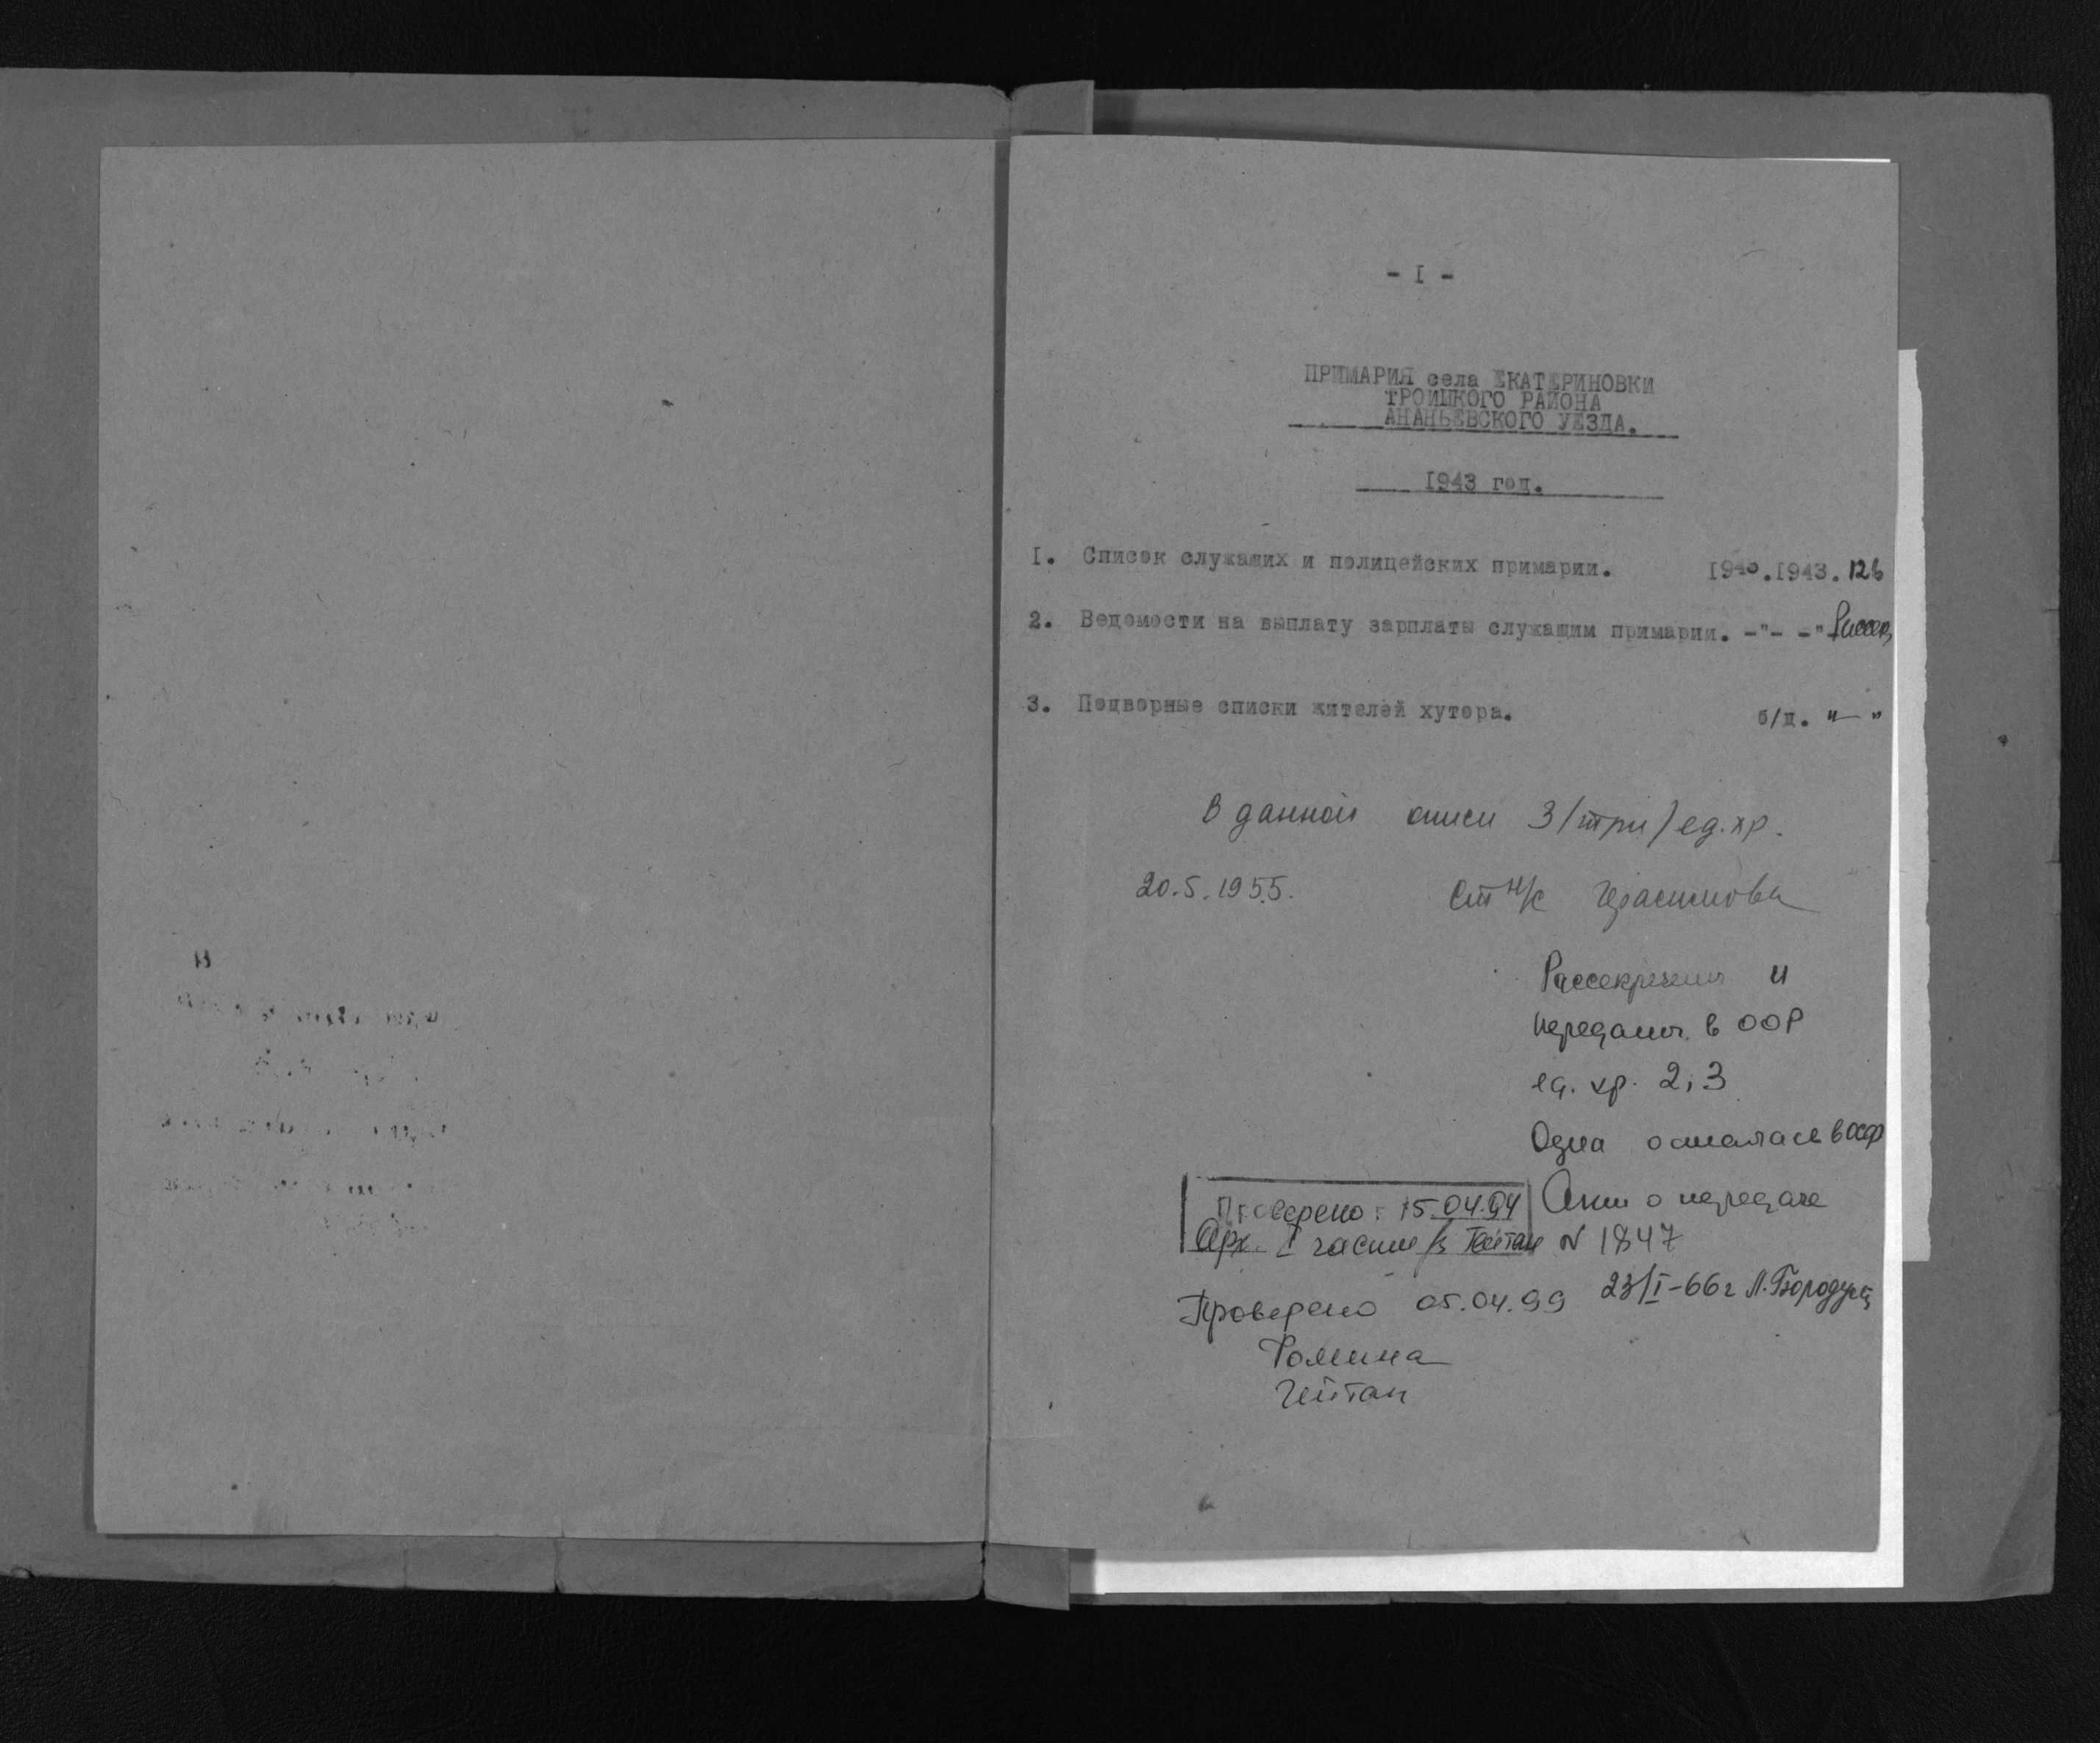 - I -
ПРИМАРИЯ села ЕКАТЕРИНОВКИ
ТРОИЦКОГО РАЙОНА
АНАНЬЕВСКОГО УЕЗДА.
1943 год.
I. Список служащих и полицейских примарии. 1943.1943. 126
2. Ведомости на выплату зарплаты служащим примарии. -"- -"- Рассек
3. Подворные списки жителей хутора. б/д. "—"
В данной описи 3/три/ ед.хр.
20.5.1955. Ст н/с Герасимова
Рассекречены и
переданы в ООР
ед. хр. 2,3
Одна осталась в ОСФ
Акт о передаче
N 1847
23/I-66г Л.Бородун
Проверено: 15.04.94
Арх. I части Гейтан
Проверено 05.04.99
Фомина
Гейтан